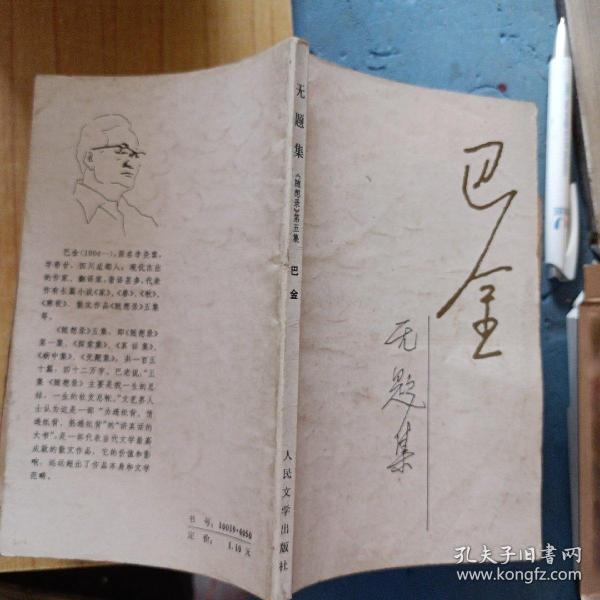 巴金
无题集
无题集
《随想录》第五集
巴金
人民文学出版社
巴金(1904—),原名李尧棠,
字芾甘,四川成都人;现代杰出
的作家、翻译家,著译甚多,代表
作有长篇小说《家》、《春》、《秋》、
《寒夜》、散文作品《随想录》五集
等。
《随想录》五集,即《随想录》
第一集、《探索集》、《真话集》、
《病中集》、《无题集》,共一百五
十篇,四十二万字。巴老说,"五
集《随想录》主要是我一生的总
结,一生的收支总帐。"文艺界人
士认为这是一部"力透纸背,情
透纸背,热透纸背"的"讲真话的
大书",是一部代表当代文学最高
成就的散文作品,它的价值和影
响,远远超出了作品本身和文学
范畴。
书号:10019·4050
定价:1.10元
孔夫子旧书网
www.kongfz.com